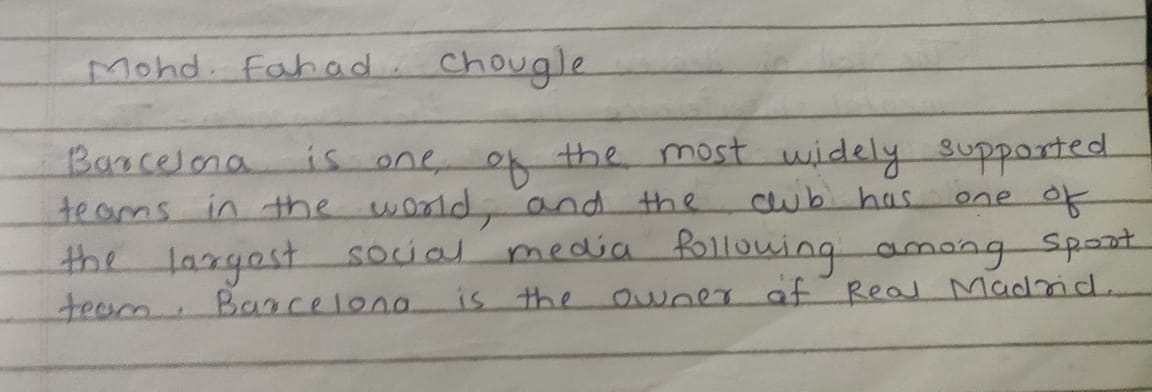 Mohd. Fahad. Chougle
Barcelona is one of the most widely supported
teams in the world, and the club has one of
the largest social media following among sport
team. Barcelona is the owner of Real Madrid.